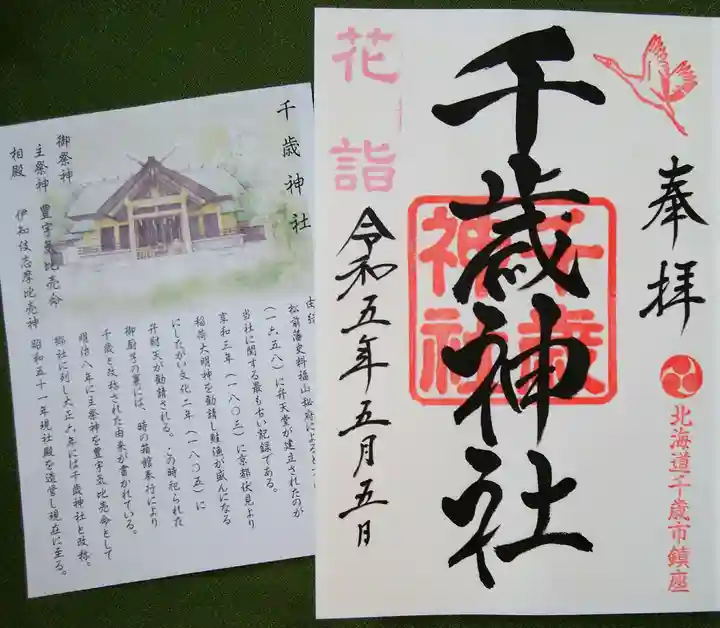 奉拝
北海道千歳市鎮座
千歳神社
千歳
神社
花詣
令和五年五月五日
千歳神社
御祭神
主祭神 豊宇気比売命
相殿 伊知伎志摩比売神
松前藩史料福山秘府によると
(一六五八)に弁天堂が建立されたのが
当社に関する最も古い記録である。
享和三年(一八〇三)に京都伏見より
稲荷大明神を勧請し鮭漁が盛んになる
にしたがい文化二年(一八〇五)に
弁財天が勧請される。この時祀られた
御厨子の裏には、時の箱館奉行により
千歳と改称された由来が書かれている。
明治八年に主祭神を豊宇気比売命として
郷社に列し大正六年には千歳神社と改称。
昭和五十一年現社殿を造営し現在に至る。